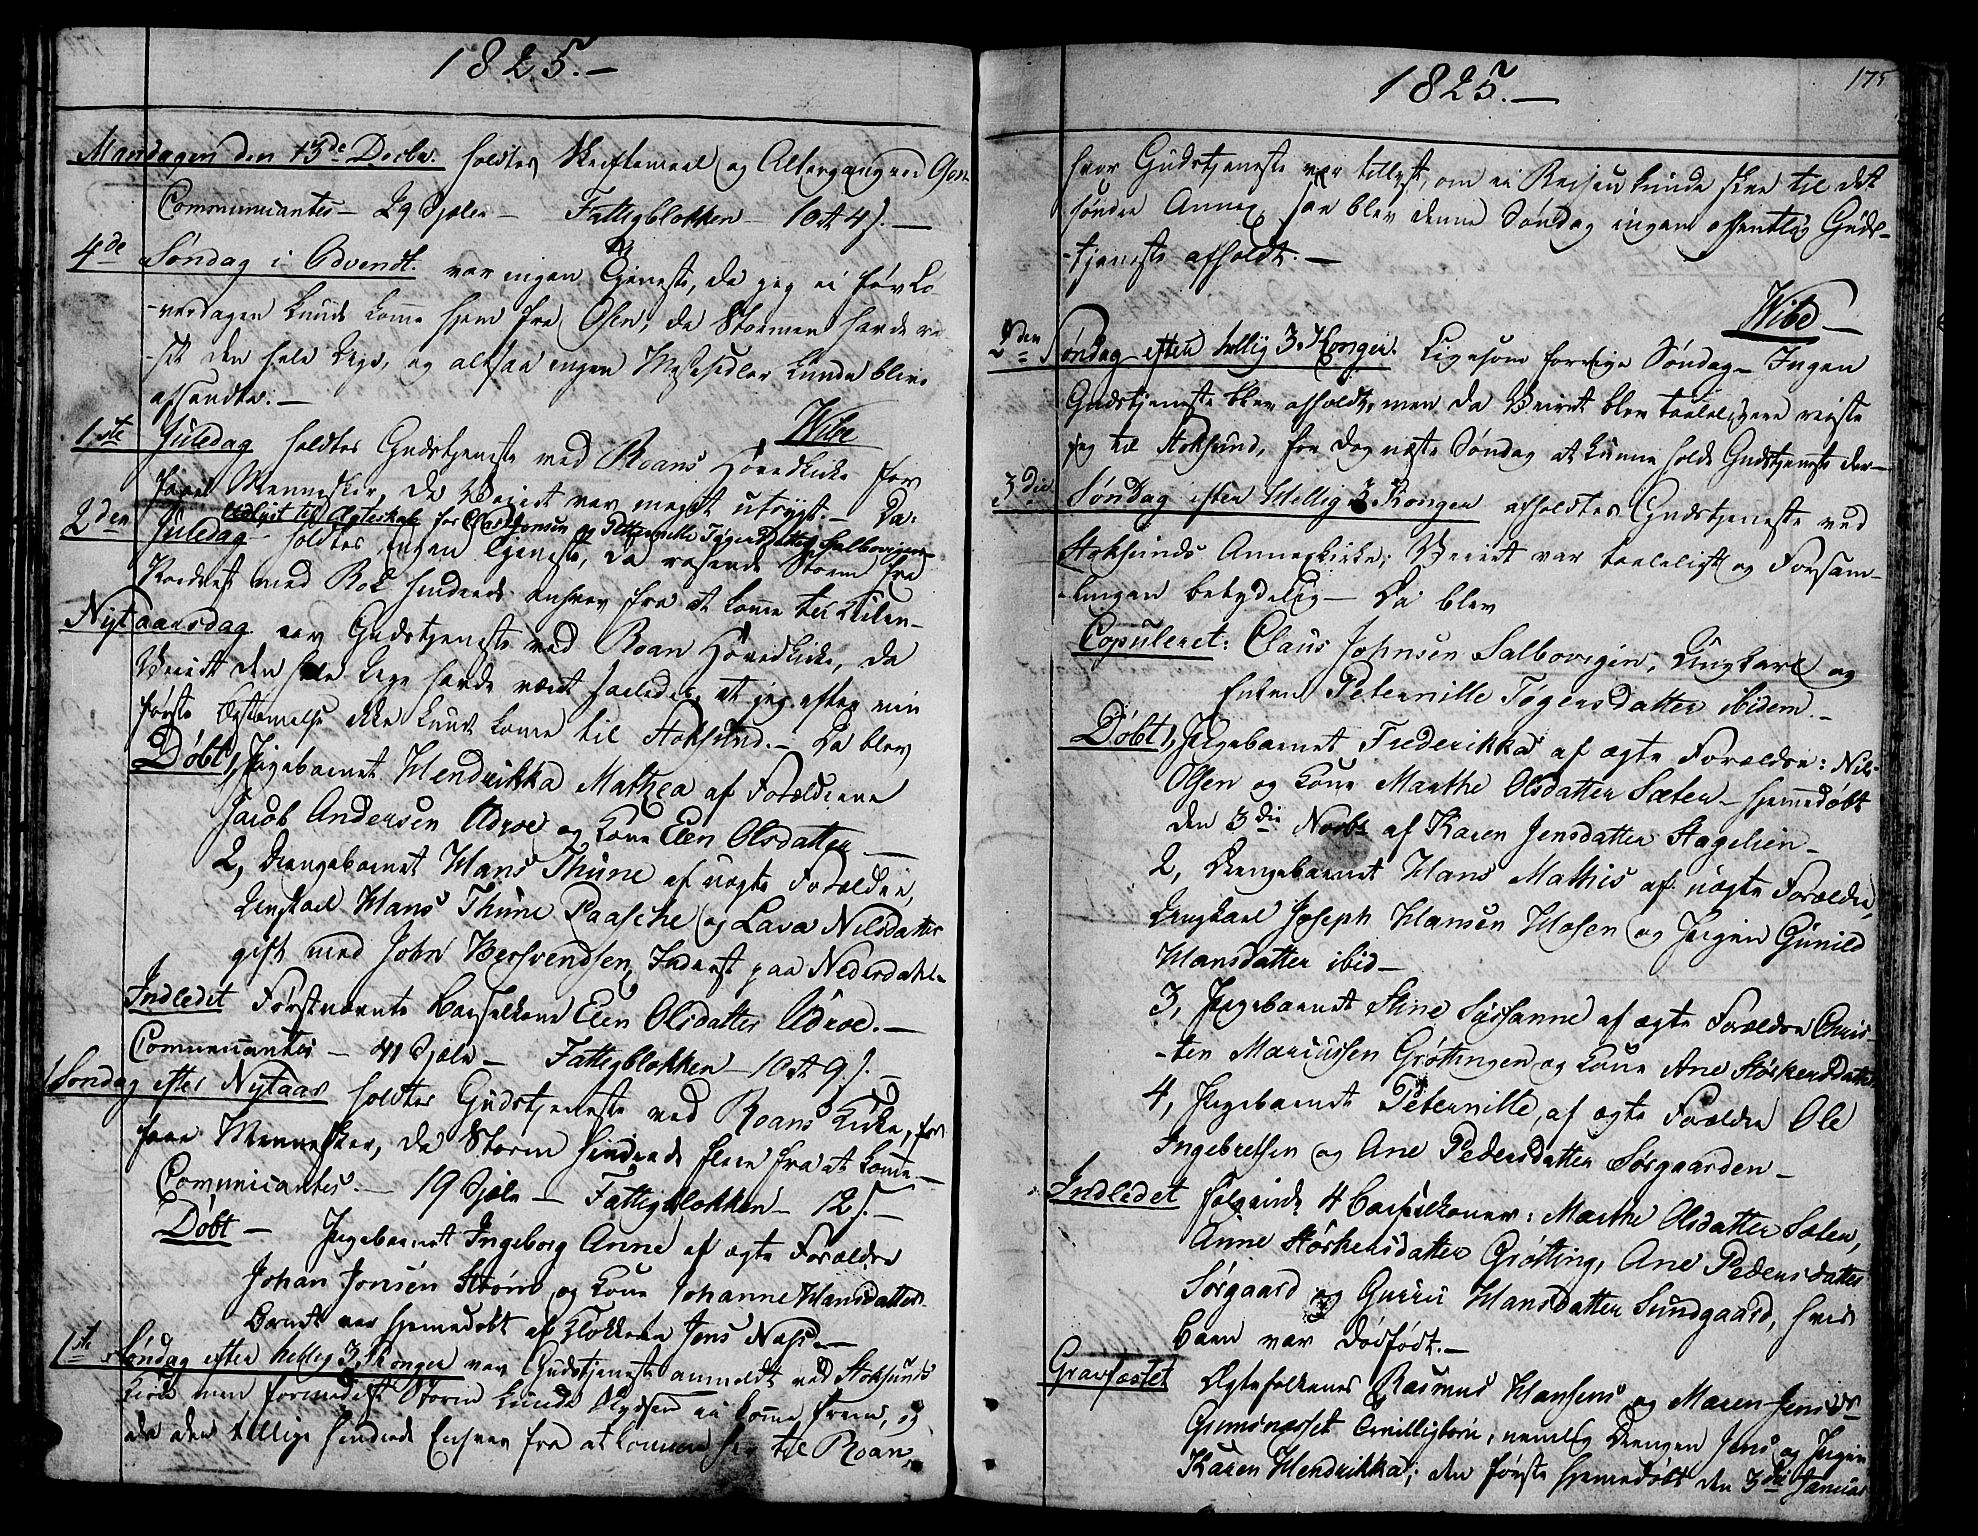 1825.-
Mandagen den 13de Decbr. holdtes Skriftemaal og Altergang ved Osen
Communicantes - 29 Sjæle - Fattigblokken - 10 4 s. -
4de Søndag i Advendt. var ingen Tjeneste, da jeg ei før Lø-
-verdagen kunde komme hjem fra Osen, da Stormen havde ra-
-set den hele Uge, og altsaa ingen Messesedler kunde blive
afsendte. -
Wibe
1ste Juledag holdtes Gudstjeneste ved Roans Hovedkirke for
faae Mennesker, da Veiret var meget utrygt. - Da
udlyst til Ægteskab for Claus Jonsen og Petternille Tøgersdatter Salbovigen
2den Juledag - holdtes ingen Tjeneste, da rasende Storm fra
Nordvest med Rok hindrede enhver fra at komme til Kirken -
Nytaarsdag var Gudstjeneste ved Roan Hovedkirke, da
Veiret den hele Uge havde været saaledes at jeg efter min
første Bestemmelse ikke kunde komme til Stoksund. - Da blev
Døbt 1, Pigebarnet Hendrikka Mathea af Forældrene
Jacob Andersen Udroe og Kone Elen Olsdatter -
2, Drengebarnet Hans Thüne af uægte Forældre,
Ungkarl Hans Thüne Paasche og Lava Nilsdatter
gift med John Bersvendsen Inderst paa Nederdahl -
Indledet Førstnævnte Barselkone Elen Olsdatter Udroe. -
Communicantes - 41 Sjæle - Fattigblokken - 10 9 s. -
Søndag efter Nytaar holdtes Gudstjeneste ved Roans Kirke, for
faae Mennesker, da Storm hindrede flere fra at komme -
Communicantes. - 19 Sjæle - Fattigblokken - 12 s. -
Døbt - Pigebarnet Ingeborg Anne af ægte Forældre
Johan Jonsen Strøm og Kone Johanne Hansdatter.
Barnet var hjemmedøbt af Klokkeren Jens Næss. -
1ste Søndag efter hellig 3 Konger var Gudstjeneste anmeldt ved Stoksunds
Kirke men formedelst Storm kunde ei komme frem, og
da den tillige hindrede Enhver fra at komme til Roan,
1825. -
175
hvor Gudstjeneste var tillyst, om ei Reisen kunde skee til det
søndre Annex, saa blev denne Søndag ingen offentlig Guds-
-tjeneste afholdt. -
Wibe -
2den Søndag efter hellig 3 Konger. Ligesom forrige Søndag - Ingen
Gudstjeneste blev afholdt, men da Veiret blev taaleligere reiste
jeg til Stoksund, for dog næste Søndag at kunne holde Gudstjeneste der -
3die Søndag efter Hellig 3 Konger afholdtes Gudstjeneste ved
Stoksunds Annexkirke; Veiret var taaleligt og Forsam-
-lingen betydelig - Da blev
Copuleret: Claus Johnsen Salbovigen, Ungkarl og
Enken Peternille Tøgersdatter ibidem. -
Døbt 1, Pigebarnet Frederikka af ægte Forældre: Nils
Olsen og Kone Marthe Olsdatter Sæter - hjemmedøbt
den 3die Novbr af Karen Jensdatter Hagelien -
2, Drengebarnet Hans Mathis af uægte Forældre,
Ungkarl Joseph Hansen Hosen og Pigen Gunild
Hansdatter ibid -
3, Pigebarnet Stine Susanne af ægte Forældre Chris-
-ten Marcussen Grøttingen og Kone Ane Størkersdatter
4, Pigebarnet Peternille, af ægte Forældre Ole
Ingebretsen og Ane Pedersdatter Sørgaarden -
Indledet følgende 4 Barselkoner: Marthe Olsdatter Sæter,
Anne Størkersdatter Grøtting, Ane Pedersdatter
Sørgaard og Gurru Hansdatter Sundgaard, hvis
Barn var dødfødt. -
Gravfæstet Ægtefolkenes Rasmus Hansens og Maren Jensdr
Gumsnæsset Tvillingbørn, nemlig Drengen Jens og Pigen
Karen Hendrikka; den første hjemmedøbt den 3die Januar